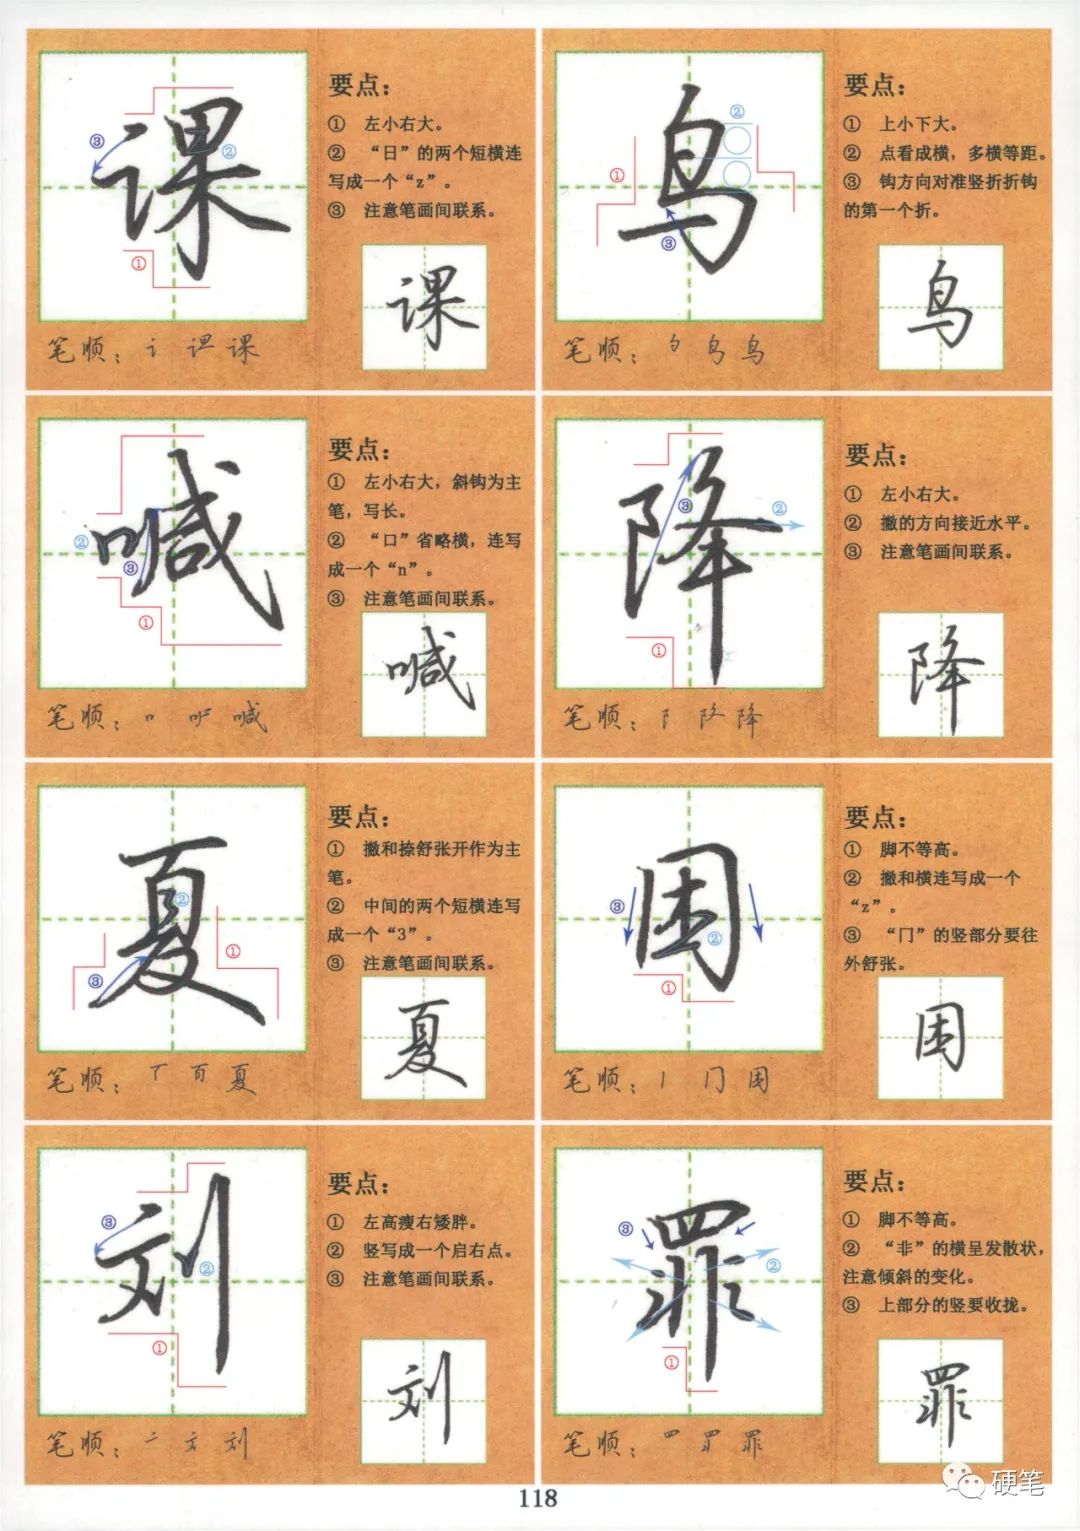 课
③
②
①
要点：
① 左小右大。
② “日”的两个短横连
写成一个“z”。
③ 注意笔画间联系。
课
笔顺：讠 课 课
鸟
②
①
③
要点：
① 上小下大。
② 点看成横，多横等距。
③ 钩方向对准竖折折钩
的第一个折。
鸟
笔顺： 鸟 鸟
喊
②
③
①
要点：
① 左小右大，斜钩为主
笔，写长。
② “口”省略横，连写
成一个“n”。
③ 注意笔画间联系。
喊
笔顺：口 喊
降
③
②
①
要点：
① 左小右大。
② 撇的方向接近水平。
③ 注意笔画间联系。
降
笔顺：阝 降
夏
②
①
③
要点：
① 撇和捺舒张开作为主
笔。
② 中间的两个短横连写
成一个“3”。
③ 注意笔画间联系。
夏
笔顺：丆 百 夏
困
③
②
①
要点：
① 脚不等高。
② 撇和横连写成一个
“z”。
③ “门”的竖部分要往
外舒张。
困
笔顺：丨 冂 困
刘
③
②
①
要点：
① 左高瘦右矮胖。
② 竖写成一个启右点。
③ 注意笔画间联系。
刘
笔顺：亠 文 刘
罪
③
②
①
要点：
① 脚不等高。
② “非”的横呈发散状，
注意倾斜的变化。
③ 上部分的竖要收拢。
罪
笔顺：罒 罪
118
硬笔